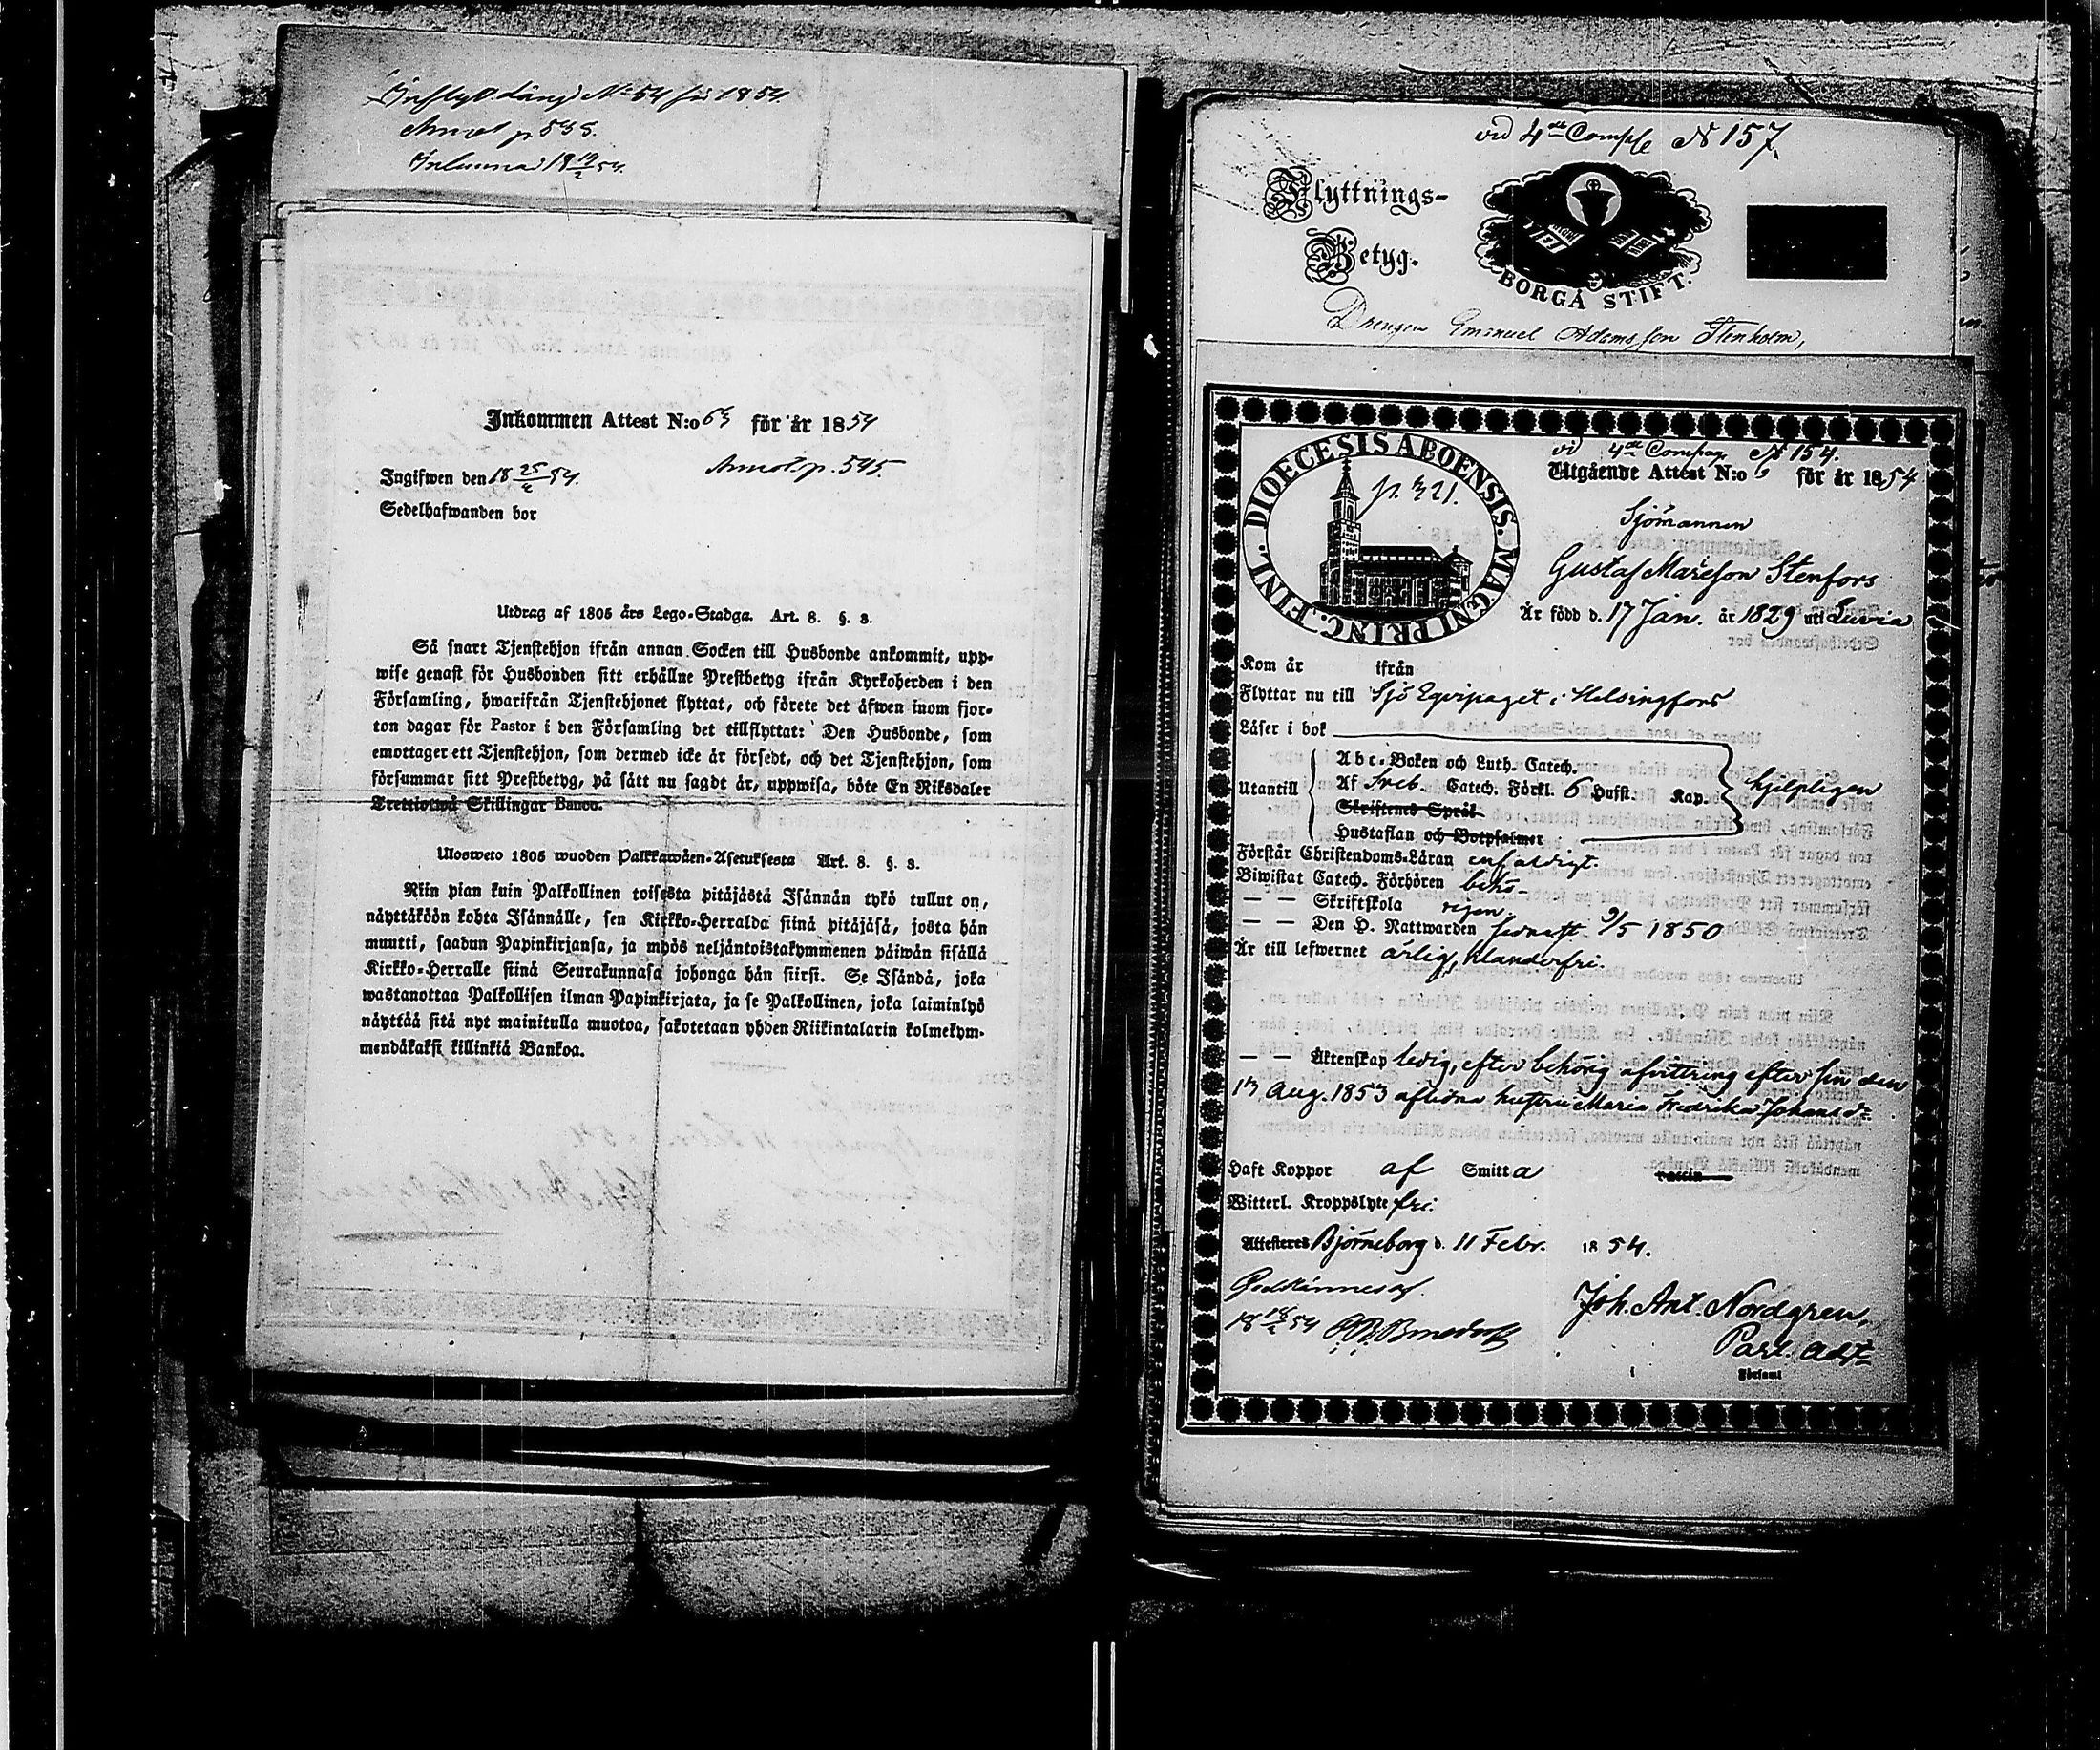 Inflytt. Längd No 54 för 1854
Annot p. 535.
Inlemnad 18 19/2 54.
Inkommen Attest N:o 63 för år 1854
Annot. p. 545.
Ingifwen den 18 25/2 54.
Sedelhafwanden bor
Utdrag af 1805 års Lego-Stadga. Art. 8. §. 3.
Så snart Tjenstehjon ifrån annan Socken till Husbonde ankommit, upp-
wise genast för Husbonden sitt erhållne Prestbetyg ifrån Kyrkoherden i den
Församling, hwarifrån Tjenstehjonet flyttat, och förete det äfwen inom fjor-
ton dagar för Pastor i den Församling det tillflyttat: Den Husbonde, som
emottager ett Tjenstehjon, som dermed icke är försedt, och det Tjenstehjon, som
försummar sitt Prestbetyg, på sätt nu sagdt är, uppwisa, böte En Riksdaler
Trettiotwå Skillingar Banco.
Ulosweto 1805 wuoden Palkkawäen-Asetuksesta Art. 8. §. 3.
Niin pian kuin Palkollinen toisesta pitäjästä Isännän tykö tullut on,
näyttäköön kohta Isännälle, sen Kirkko-Herralda siinä pitäjäsä, josta hän
muutti, saadun Papinkirjansa, ja myös neljäntoistakymmenen päiwän sisällä
Kirkko-Herralle siinä Seurakunnasa johonga hän siirsi. Se Isändä, joka
wastanottaa Palkollisen ilman Papinkirjata, ja se Palkollinen, joka laiminlyö
näyttää sitä nyt mainitulla muotoa, sakotetaan yhden Riikintalarin kolmekym-
mendäkaksi killinkiä Bankoa.
vid 4de Comp N 157.
Flyttnings-
Betyg.
BORGÅ STIFT.
Drengen Emanuel Adamsson Stenholm,
DIOECESIS ABOENSIS. MAGNI PRINC. FINL.
p. 321.
vid 4de Compag. N 154.
Utgående Attest N:o 6 för år 1854
Sjömannen
Gustaf Matsson Stenfors
Är född d. 17 Jan. år 1829 uti Luvia
Kom år ifrån
Flyttar nu till Sjö Eqvipaget i Helsingfors
Läser i bok
Utantill
Abc-Boken och Luth. Catech.
Af Sveb. Catech. Förkl. 6 Hufst. Kap.
Skriftenes Språk
Hustaflan och Botpsalmer
hjelpligen
Förstår Christendoms-Läran enfaldigt.
Biwistat Catech. Förhören behö-
— — Skriftskola rigen
— — Den H. Nattwarden sednast 9/5 1850
Är till lefwernet ärlig, klanderfri.
— — Äktenskap ledig, efter behörig afvittring efter sin den
13 Aug. 1853 aflidna hustru Maria Fredrika Johansdr
Haft Koppor af Smitta
vaccin
Witterl. Kroppslyte fri.
Attesteras Björneborg d. 11 Febr. 1854.
Godkännes af.
18 18/2 54
Joh. Ant. Nordgren,
Past. Adj:t
Församl